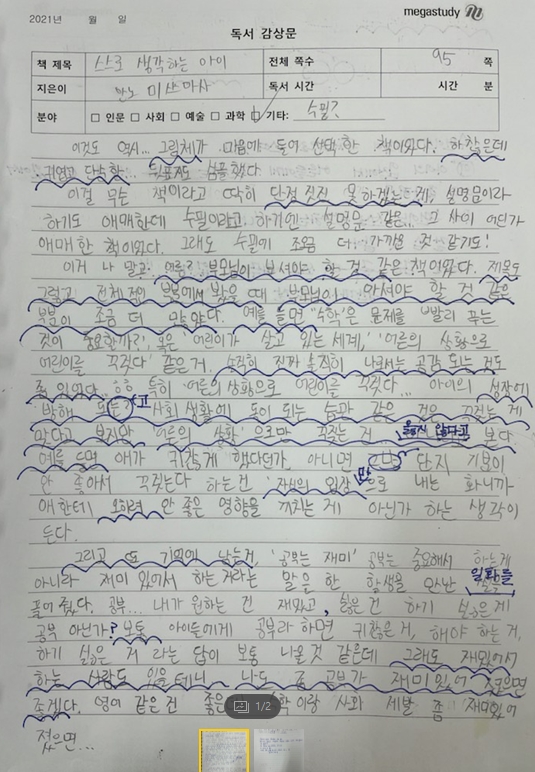 2021년 월 일
megastudy
독서 감상문
책 제목 스스로 생각하는 아이 전체 쪽수 95 쪽
지은이 안노 미쓰마사 독서 시간 시간 분
분야 □ 인문 □ 사회 □ 예술 □ 과학 □ 기타: 수필?
이것도 역시... 그림체가 마음에 들어 선택한 책이었다. 하찮은데
귀엽고 단순한 뒷표지도 심플했다.
이걸 무슨 책이라고 딱히 단정 짓진 못하겠는 게, 설명문이라
하기도 애매한데 수필이라고 하기엔 설명문 같은... 그 사이 어딘가
애매한 책이었다. 그래도 수필에 조금 더 가까운 것 같기도!
이거 나 말고 어른? 부모님이 보셔야 할 것 같은 책이었다. 제목도
그렇고 전체적인 부분에서 봤을 때 부모님이 아셔야 할 것 같은
부분이 조금 더 많았다. 예를 들면 '수학'은 문제를 빨리 푸는
것이 중요한가?', 혹은 '어린이가 살고 있는 세계', '어른의 상황으로
어린이를 꾸짖다' 같은 거. 솔직히 진짜 솔직히 나로서는 공감 되는 것도
좀 있었다.. ㅎㅎ 특히 '어른의 상황으로 어린이를 꾸짖다... 아이의 성장에
방해 되는? 고 사회 생활에 독이 되는 습관 같은 것은 꾸짖는 게
맞다고 보지만 '어른의 상황' 으로만 꾸짖는 건 옳지 않다고 본다.
예를 들면 애가 귀찮게 했다던가 아니면 단지 기분이
안 좋아서 꾸짖는다 하는건 '자신의 입장'만으로 내는 화니까
애한테 오히려 안 좋은 영향을 끼치는 게 아닌가 하는 생각이
든다.
그리고 또 기억에 남는거 '공부는 재미' 공부는 중요해서 하는게
아니라 재미 있어서 하는 거라는 말을 한 학생을 일화를
풀어 줬다. 공부... 내가 원하는 건 재밌고, 싫은 건 하기 싫은 게
공부 아닌가? 보통 아이들에게 공부라 하면 귀찮은 거, 해야 하는 거,
하기 싫은 거 라는 답이 보통 나올것 같은데 그래도 재밌어서
하는 사람도 있을테니 나도 좀 공부가 재미있어 졌으면
좋겠다. 영어 같은건 좋은 수학이랑 사회 제발 좀 재미있어
졌으면...
1/2